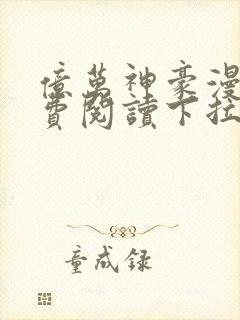 億萬神豪漫
費閱讀下拉
童成録